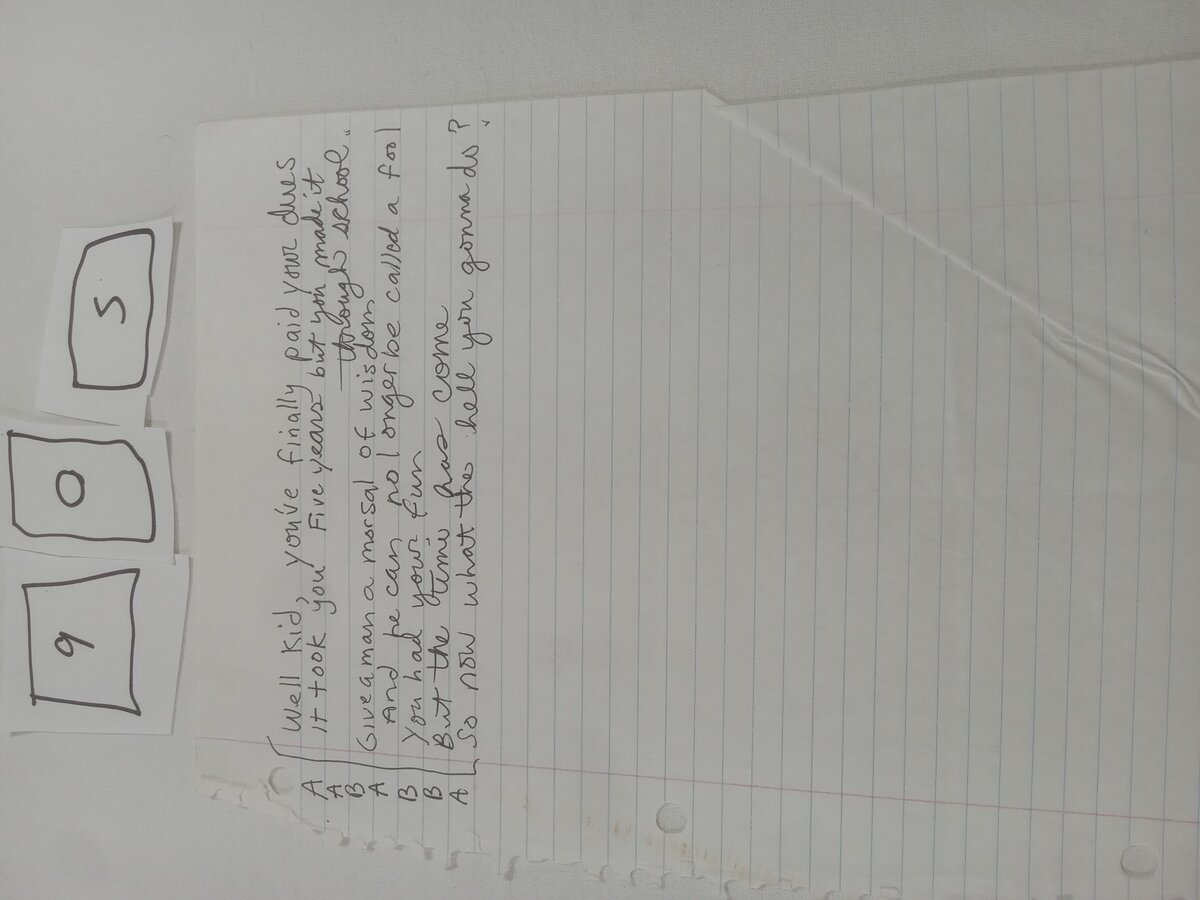 6 0 5
A Well Kid, you've finally paid your dues
A It took you Five years but you made it
through school.
B Give a man a morsal of wisdom
A And he can no longer be called a fool
B You had your fun
B But the time has come
A So now what the hell you gonna do?